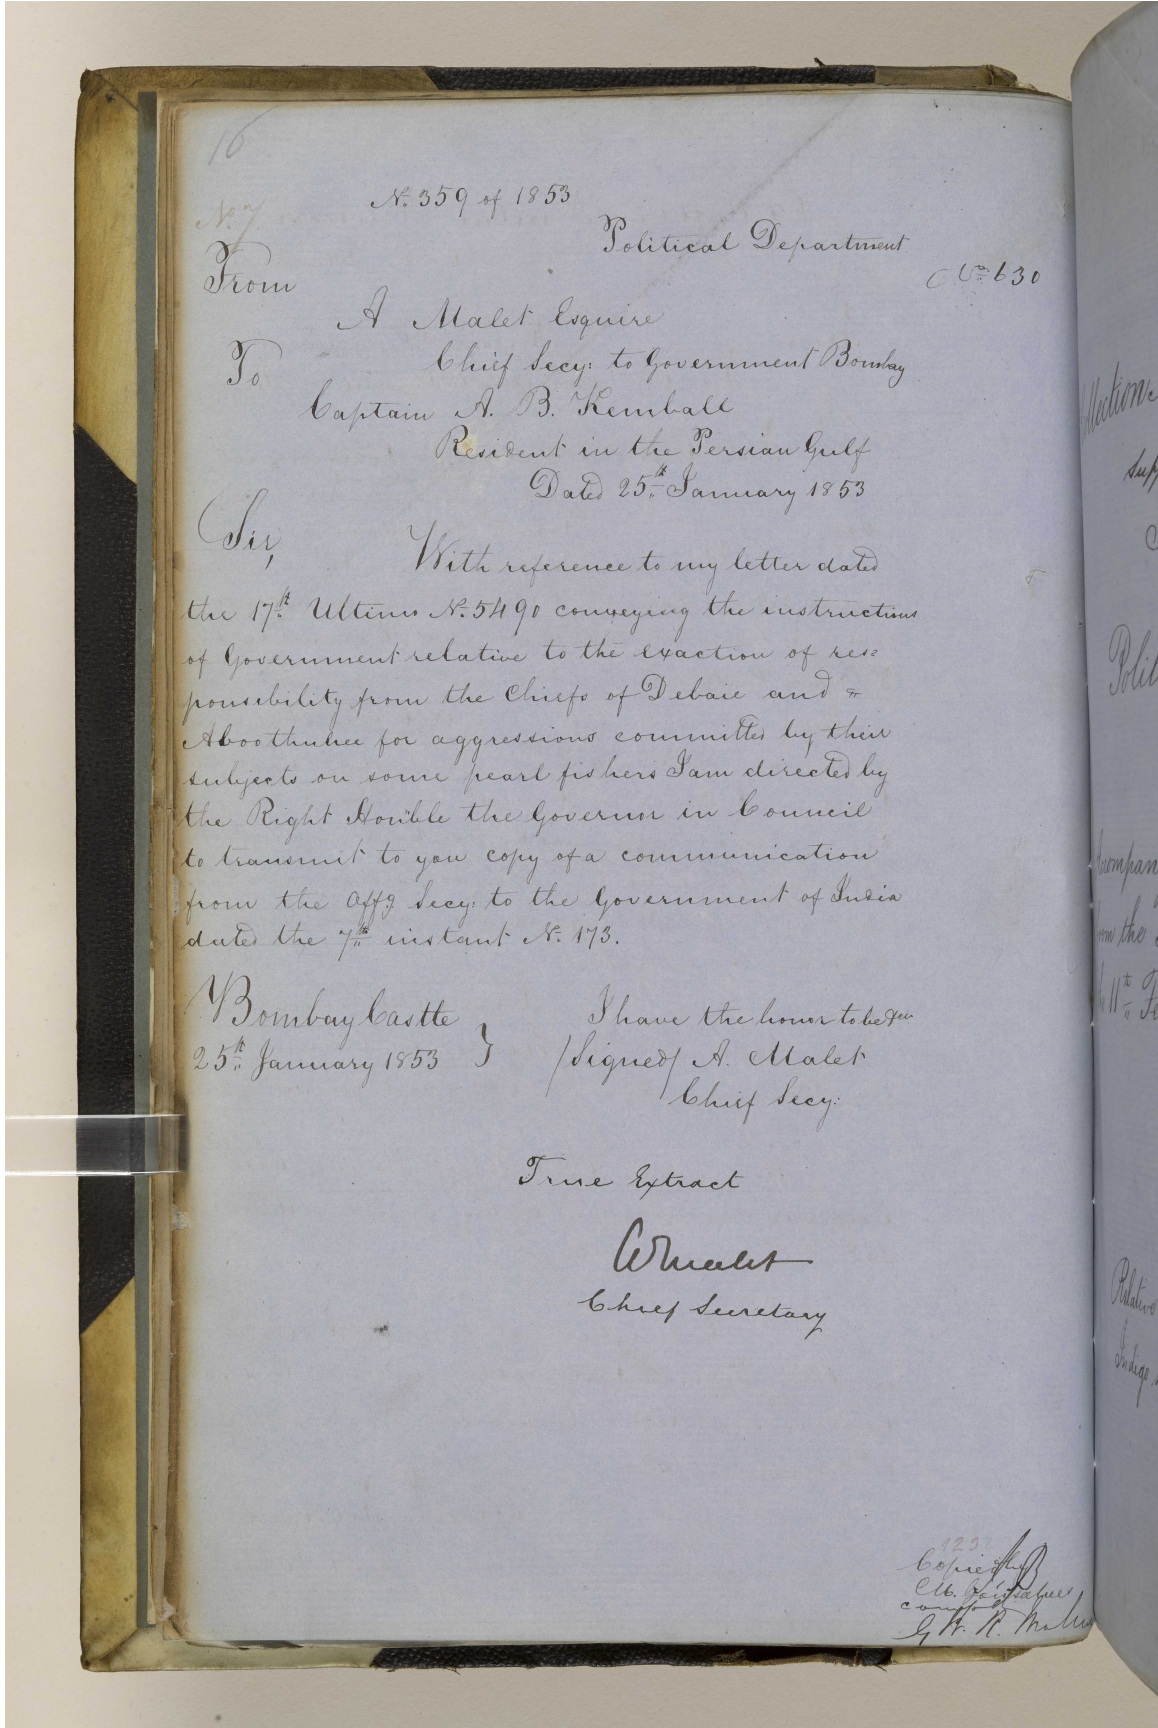 16
No. 359 of 1853
No. 7
Political Department
No. 630
From
A Malet Esquire
To
Chief Secy: to Government Bombay
Captain A. B. Kemball
Resident in the Persian Gulf
Dated 25th January 1853
Sir,
With reference to my letter dated
the 17th Ultimo No. 5490 conveying the instructions
of Government relative to the exaction of res=
ponsibility from the Chiefs of Debaie and
Aboothubee for aggressions committed by their
subjects on some pearl fishers I am directed by
the Right Honble the Governor in Council
to transmit to you copy of a communication
from the Offg Secy: to the Government of India
dated the 7th instant No. 173.
Bombay Castle
25th January 1853 }
I have the honor to be &ca
/Signed/ A. Malet
Chief Secy:
True Extract
A Malet
Chief Secretary
Copied by
G. W. R.
llection
Supp
Polit
ccompan
from the
11th Fe
Relative
Indigo